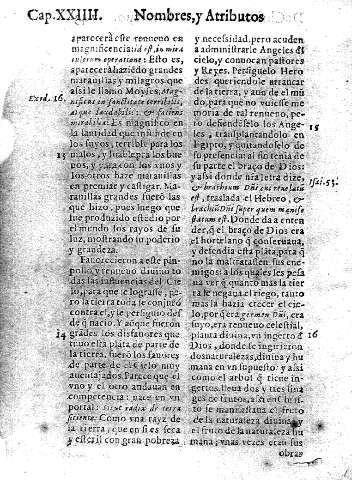 Cap. XXIIII. Nombres, y Atributos
aparecerá este renueuo en
magnificencia: id est, in mira
culorum operatione: Esto es,
aparecerá haziẽdo grandes
marauillas y milagros que
assi le llamo Moyses, Mag-
Exod. 16.
nificens in sanctitate terribilis,
atque laudabilis: & faciens
mirabilia. Es magnifico en
la santidad que infunde en
los suyos, terrible para los
13
malos, y loable para los bue
nos, y para con los vnos y
los otros haze marauillas
en premiar y castigar. Ma-
rauillas grandes fuerõ las
que hizo, pues luego que
fue produzido esclarecio por
el mundo los rayos de su
luz, mostrando tu poderio
y grandeza.
Fauorecieron a este pim-
pollo y renueuo diuino to
das las influencias del Cie
lo, para que se lograsse, pe-
ro la tierra toda se conjuró
contra el, y le persiguio des
de q̃ nacio. Y aunque fueron
14
grãdes los disfauores que
tuuo esta plãta de parte de
la tierra, fuerõ los fauores
de parte de el Cielo muy
auentajados. Parece que el
vno y el otro andauan en
competencia: nace en vn
portal: Sicut radix de terra
sitiente: Como vna rayz de
la tierra, que en si es seca
y esteril con gran pobreza
y necessidad, pero acuden
a administrarle Angeles del
cielo, y conuocan pastores
y Reyes. Persiguelo Hero
des, queriendole arrancar
de la tierra, y aun de el mũ
do, para que no vuiesse me
moria de tal renueuo, pe-
ro defiendẽselo los Angeles
15
, transplantandolo en
Egipto, y quitandolo de
su presencia: al fin tenia de
su parte el braço de Dios:
y assi donde nra letra dize,
& brachium Dñi cui reuelatũ
Isai. 53.
est, traslada el Hebreo, &
brachiũ Dñi super quem manife
statum est. Donde da a enten
der, q̃ el braço de Dios era
el hortelano q̃ conseruaua,
y defendia esta plãta, para q̃
no la maltratassen sus ene-
migos: a los quales les pesa
ua ver q̃ quanto mas la tier
ra le negaua el riego, tanto
mas la hazia crecer el cie-
lo, por q̃ era germen Dñi, era
suyo, era renueuo celestial,
planta diuina, vn ingerto d̃
16
Dios, donde se ingirierõ
dos naturalezas, diuina y hu
mana en vn supuesto y assi
como el arbol q̃ tiene in-
gertos, lleua dos y tres lina
ges de frutos, assi en Christo
se manifestaua el fruto
de la naturaleza diuina y
el fruto de la naturaleza hu
mana; vnas vezes eran sus
obras